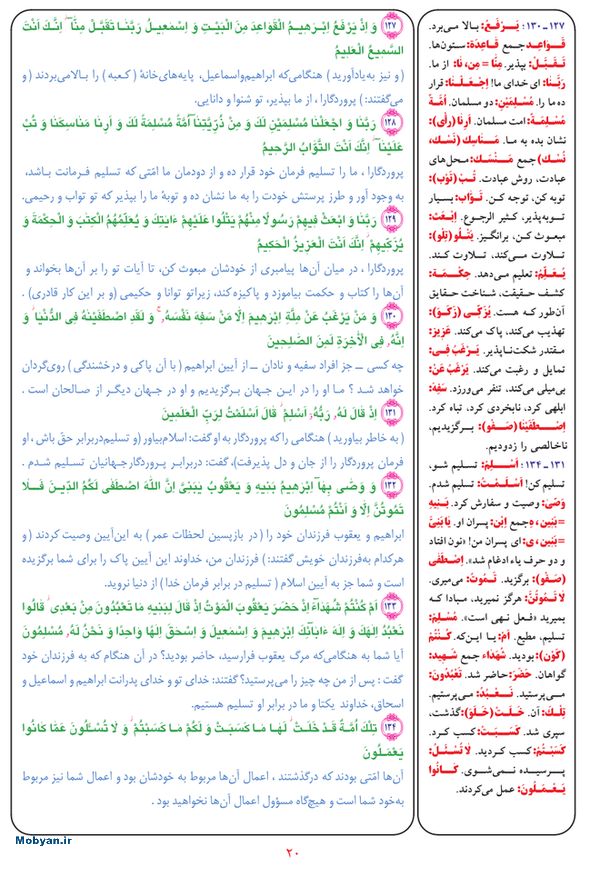 ۱۲۷ ـ ۱۳۰ : یَرْفَعُ: بالا می‌برد.
قَواعِد جمع قاعِدَة: ستون‌ها.
تَقَبَّلْ: بپذیر. مِنّا = مِن، نا: از ما.
رَبَّنا: ای خدای ما! اِجْعَلْنا: قرار
ده ما را. مُسْلِمَیْنِ: دو مسلمان. اُمَّةً
مُسْلِمَةً: امت مسلمان. اَرِنا (رأی):
نشان بده به ما. مَناسِک (نَسْک،
نُسْک) جمع مَنْسَک: محل‌های
عبادت، روش عبادت. تُبْ (تَوْب):
توبه کن، توجه کن. تَوّاب: بسیار
توبه‌پذیر، کثیر الرجوع. اِبْعَثْ:
مبعوث کن، برانگیز. یَتْلُو (تِلْو):
تلاوت می‌کند، تلاوت کند.
یُعَلِّمُ: تعلیم می‌دهد. حِکْمَة:
کشف حقیقت، شناخت حقایق
آن‌طور که هست. یُزَکّی (زَکْو):
تهذیب می‌کند، پاک می‌کند. عَزیز:
مقتدر شکت‌ناپذیر. یَرْغَبُ فی:
تمایل و رغبت می‌کند. یَرْغَبُ عَنْ:
بی‌میلی می‌کند، تنفر می‌ورزد. سَفِهَ:
ابلهی کرد، نابخردی کرد، تباه کرد.
اِصْطَفَیْنا (صَفْو): برگزیدیم،
ناخالصی را زدودیم.
۱۳۱ ـ ۱۳۴ : اَسْلِمْ: تسلیم شو،
تسلیم کن! اَسْلَمْتُ: تسلیم شدم.
وَصّی: وصیت و سفارش کرد. بَنیهِ
= بَنین، ه جمع اِبْن: پسران او. یا بَنِیَّ
= بَنین، ی: ای پسران من! «نون افتاد
و دو حرف یاء ادغام شد». اِصْطَفی
(صَفْو): برگزید. تَمُوتُ: می‌میری.
لا تَمُوتُنَّ: هرگز نمیرید، مبادا که
بمیرید «فعل نهی است». مُسْلِمْ:
تسلیم، مطیع. اَمْ: یا این‌که. کُنْتُمْ
(کَوْن): بودید. شُهَداءَ جمع شَهید:
گواهان. حَضَرَ: حاضر شد. تَعْبُدُونَ:
می‌پرستید. نَعْبُدُ: می‌پرستیم.
تِلْکَ: آن. خَلَتْ (خَلْو): گذشت،
سپری شد. کَسَبَتْ: کسب کرد.
کَسَبْتُمْ: کسب کردید. لا تُسْئَلُ:
پرسیده نمی‌شوی. کانُوا
یَعْمَلُونَ: عمل می‌کردند.
۱۲۷ وَ اِذْ یَرْفَعُ اِبْرهیمُ الْقَواعِدَ مِنَ الْبَیْتِ وَ اِسْمعیلُ رَبَّنا تَقَبَّلْ مِنّا اِنَّکَ اَنْتَ
السَّمیعُ الْعَلیمُ
( و نیز به‌یادآورید ) هنگامی‌که ابراهیم‌واسماعیل، پایه‌های‌خانهٔ ( کعبه ) را بالامی‌بردند ( و
می‌گفتند: ) پروردگارا ، از ما بپذیر، تو شنوا و دانایی.
۱۲۸ رَبَّنا وَ اجْعَلْنا مُسْلِمَیْنِ لَکَ وَ مِنْ ذُرِّیَّتِنا اُمَّةً مُسْلِمَةً لَکَ وَ اَرِنا مَناسِکَنا وَ تُبْ
عَلَیْنا اِنَّکَ اَنْتَ التَّوّابُ الرَّحیمُ
پروردگارا ، ما را تسلیم فرمان خود قرار ده و از دودمان ما امّتی که تسلیم فرمانت باشد،
به وجود آور و طرز پرستش خودت را به ما نشان ده و توبهٔ ما را بپذیر که تو تواب و رحیمی.
۱۲۹ رَبَّنا وَ ابْعَثْ فیهِمْ رَسُولًا مِنْهُمْ یَتْلُوا عَلَیْهِمْ ءایتِکَ وَ یُعَلِّمُهُمُ الْکِتبَ وَ الْحِکْمَةَ وَ
یُزَکّیهِمْ اِنَّکَ اَنْتَ الْعَزیزُ الْحَکیمُ
پروردگارا ، در میان آن‌ها پیامبری از خودشان مبعوث کن، تا آیات تو را بر آن‌ها بخواند و
آن‌ها را کتاب و حکمت بیاموزد و پاکیزه کند، زیراتو توانا و حکیمی (و بر این کار قادری) .
۱۳۰ وَ مَنْ یَرْغَبُ عَنْ مِلَّةِ اِبْرهیمَ اِلّا مَنْ سَفِهَ نَفْسَهُ وَ لَقَدِ اصْطَفَیْنهُ فِی الدُّنْیا وَ
اِنَّهُ فِی الْاخِرَةِ لَمِنَ الصّلِحینَ
چه کسی ــ جز افراد سفیه و نادان ــ از آیین ابراهیم ( با آن پاکی و درخشندگی ) روی‌گردان
خواهد شد ؟ ما او را در این جهان برگزیدیم و او در جهان دیگر از صالحان است .
۱۳۱ اِذْ قالَ لَهُ رَبُّهُ اَسْلِمْ قالَ اَسْلَمْتُ لِرَبِّ الْعلَمینَ
( به خاطر بیاورید ) هنگامی راکه پروردگار به او گفت: اسلام‌بیاور (و تسلیم‌دربرابر حقّ باش ، او
فرمان پروردگار را از جان و دل پذیرفت)، گفت: دربرابر پروردگارجهانیان تسلیم شدم .
۱۳۲ وَ وَصّی بِها اِبْرهیمُ بَنیهِ وَ یَعْقُوبُ یبَنِیَّ اِنَّ اللهَ اصْطَفی لَکُمُ الدّینَ فَلا
تَمُوتُنَّ اِلّا وَ اَنْتُمْ مُسْلِمُونَ
ابراهیم و یعقوب فرزندان خود را ( در بازپسین لحظات عمر ) به این‌آیین وصیت کردند ( و
هرکدام به‌فرزندان خویش گفتند: ) فرزندان من، خداوند این آیین پاک را برای شما برگزیده
است و شما جز به آیین اسلام ( تسلیم در برابر فرمان خدا ) از دنیا نروید.
۱۳۳ اَمْ کُنْتُمْ شُهَداءَ اِذْ حَضَرَ یَعْقُوبَ الْمَوْتُ اِذْ قالَ لِبَنیهِ ما تَعْبُدُونَ مِنْ بَعْدی قالُوا
نَعْبُدُ اِلهَکَ وَ اِلهَ ءابائِکَ اِبْرهیمَ وَ اِسْمعیلَ وَ اِسْحقَ اِلهًا واحِدًا وَ نَحْنُ لَهُ مُسْلِمُونَ
آیا شما به هنگامی‌که مرگ یعقوب فرارسید، حاضر بودید؟ در آن هنگام که به فرزندان خود
گفت : پس از من چه چیز را می‌پرستید؟ گفتند: خدای تو و خدای پدرانت ابراهیم و اسماعیل و
اسحاق، خداوند یکتا و ما در برابر او تسلیم هستیم.
۱۳۴ تِلْکَ اُمَّةٌ قَدْ خَلَتْ لَها ما کَسَبَتْ وَ لَکُمْ ما کَسَبْتُمْ وَ لا تُسْئَلُونَ عَمّا کانُوا
یَعْمَلُونَ
آن‌ها امّتی بودند که درگذشتند ، اعمال آن‌ها مربوط به خودشان بود و اعمال شما نیز مربوط
به‌خود شما است و هیچ‌گاه مسؤول اعمال آن‌ها نخواهید بود .
Mobyan.ir
۲۰